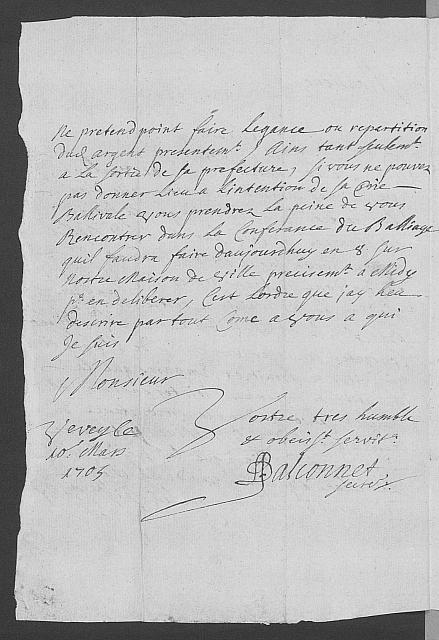 Ne pretend point faire Legance ou repartition
dud. argent presentemt. Ains tant seulemt.
a La sortie de sa prefecture, si vous ne pouvez
pas donner Lieu a Lintention de sa
Ballivale vous prendrez La peine de vous
Rencontrer dans La Conferance du Balliage
quil faudra faire daujourdhuy en 8 sur
Nostre Maison de Ville precisemt. a Midy
pr. en deliberer, Cest Lordre que jay heu
descrire par tout Come a vous a qui
Je suis
Monsieur
Vevey Le
10e. Mars
1705
Vostre tres humble
et obeisst. servitr.
secretr.